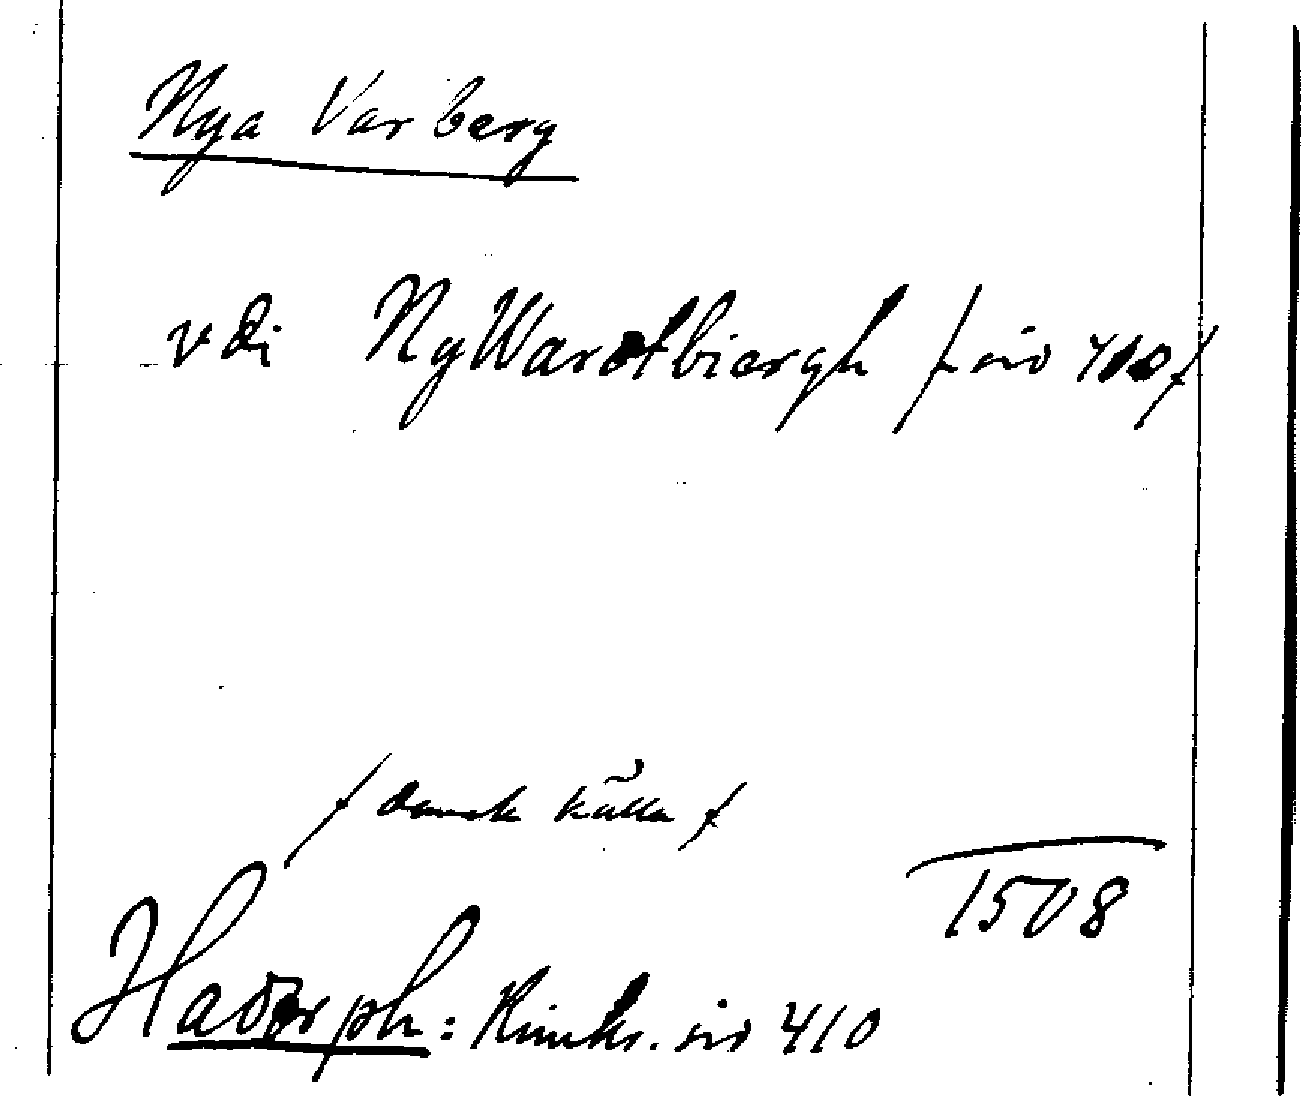 Nya Varberg
vdi NyWardtbiergh / sid 410 /
/ dansk källa /
1508
Hadorph: Rimkr. sid 410